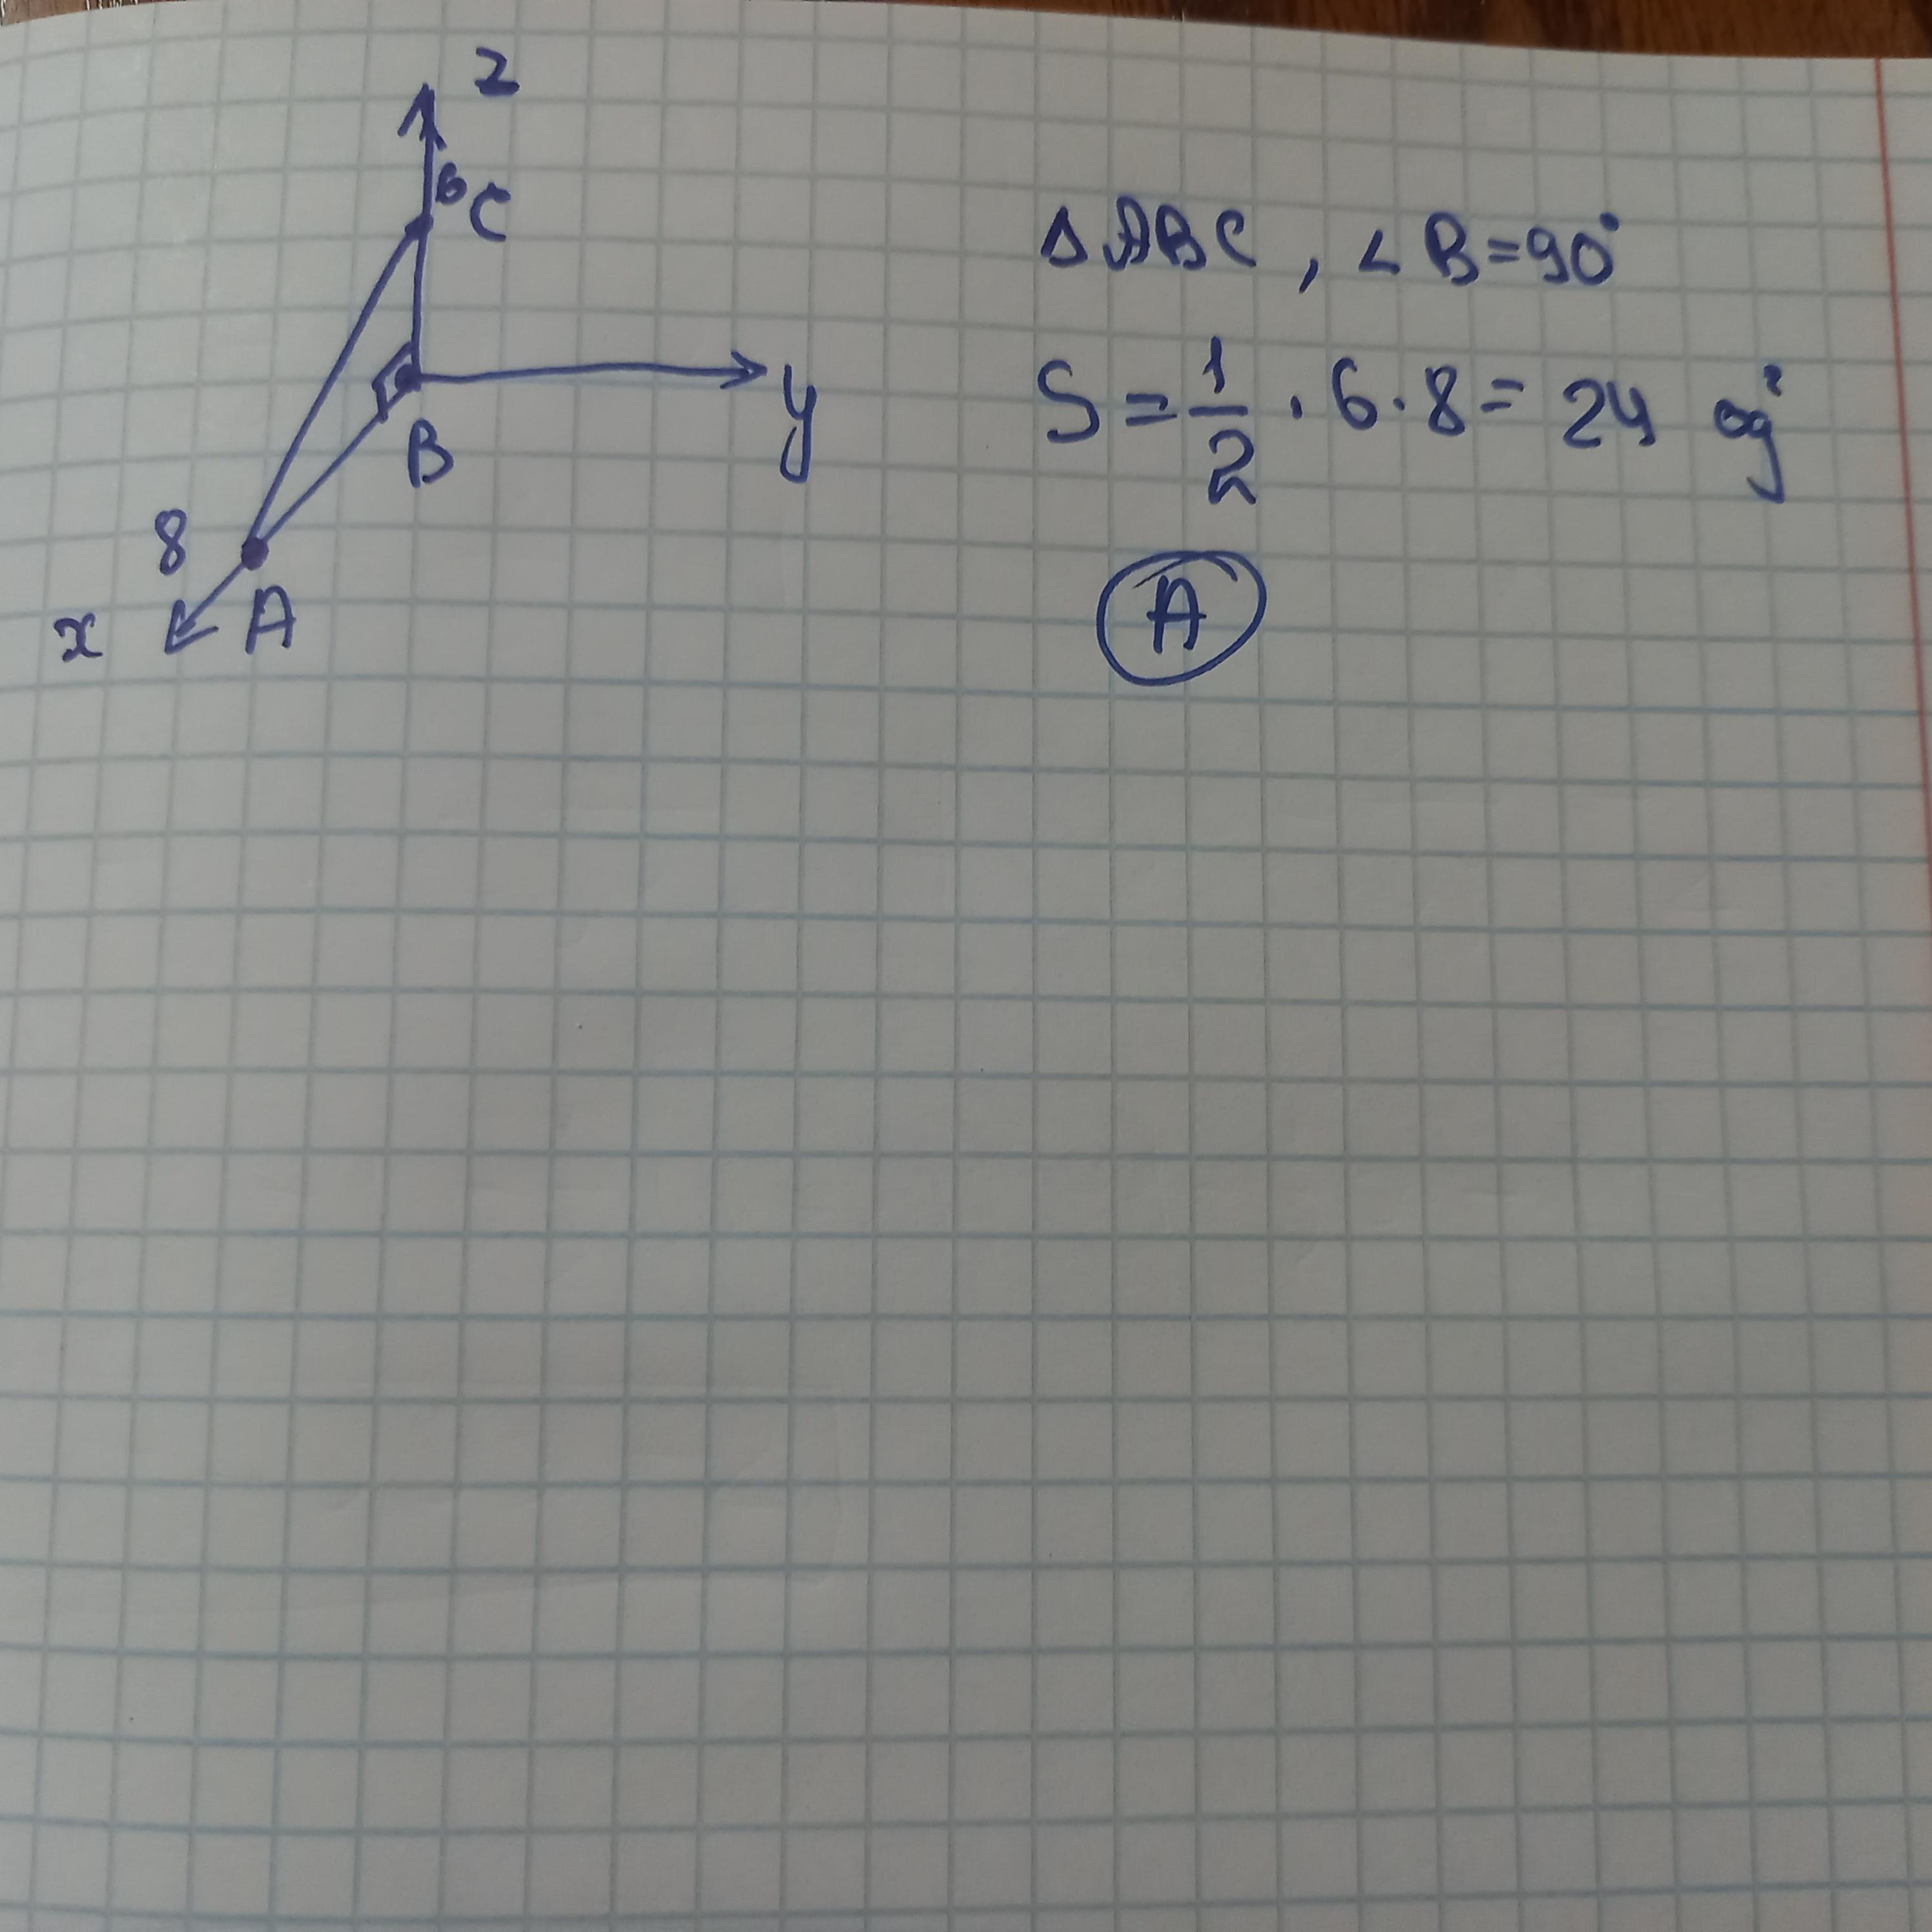 z
6 C
y
B
8
x A
Δ ABC, ∠ B = 90°
S = 1/2 · 6 · 8 = 24 од²
A